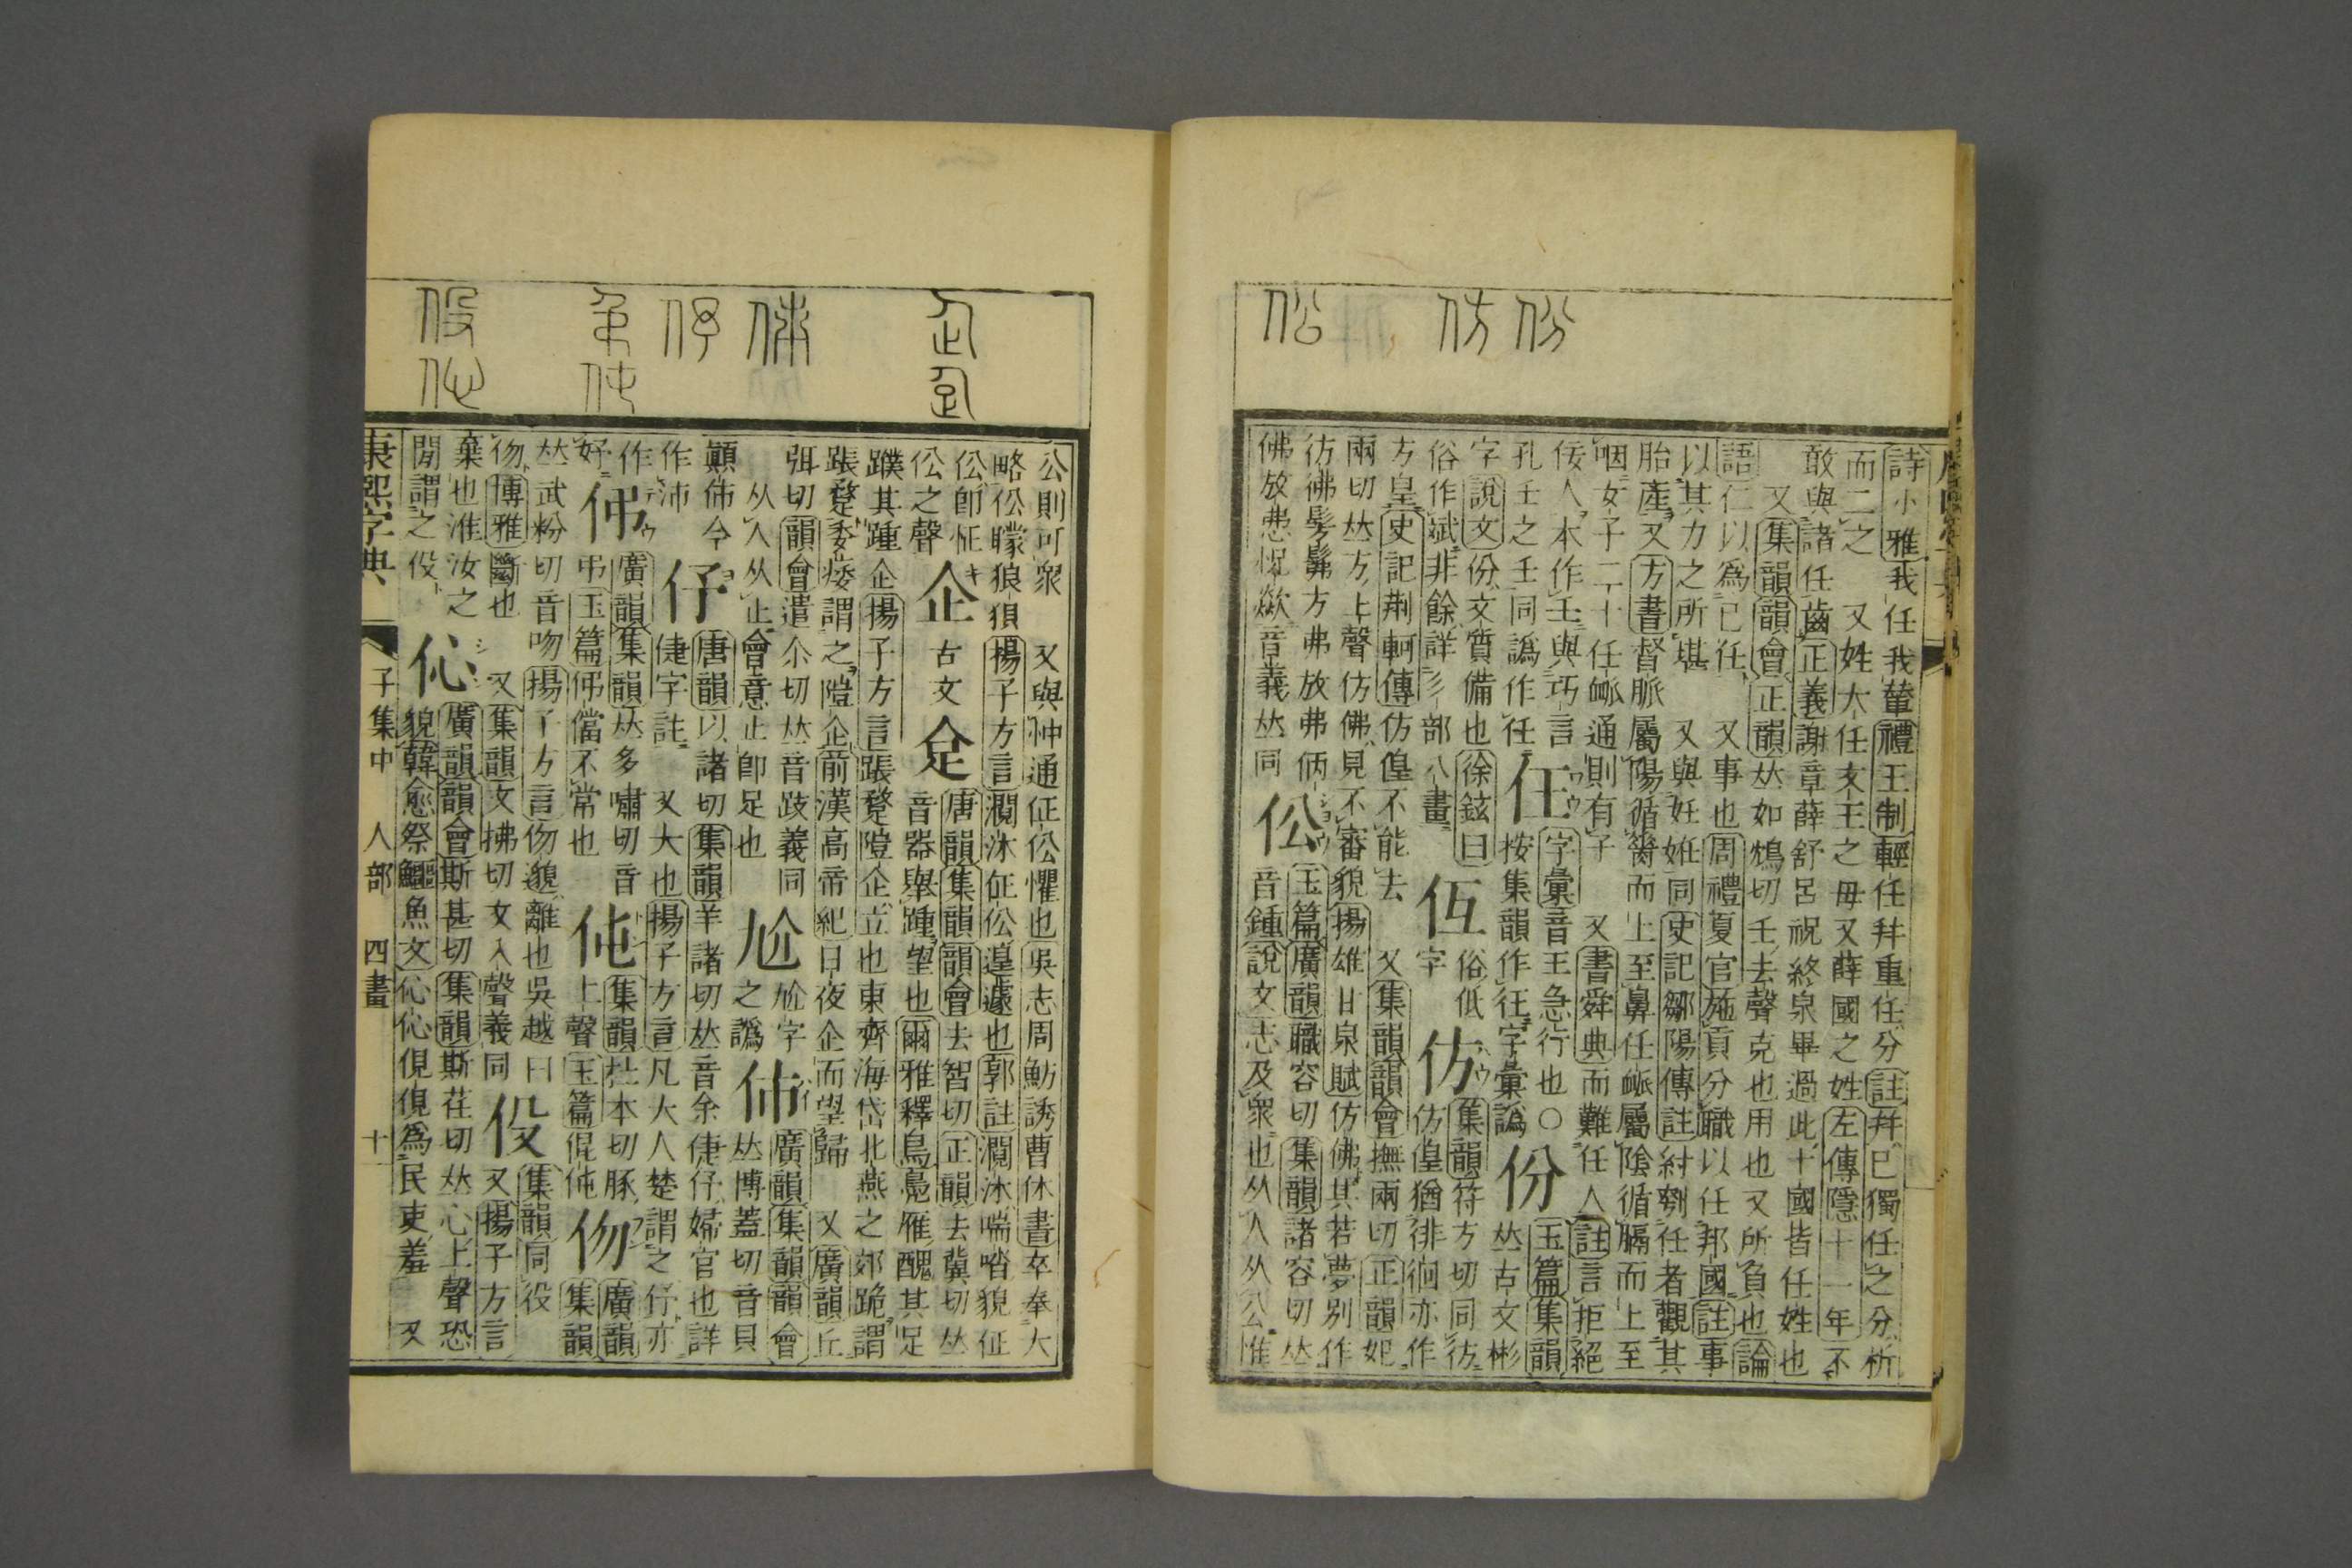 份 仿 伀
詩小雅我任我輦禮王制輕任幷重任分註幷已獨任之分析
而二之 又姓大任文王之母又薛國之姓左傳隱十一年不
敢與諸任齒正義謝章薛舒呂祝終泉畢過此十國皆任姓也
又集韻韻會正韻𠀤如鴆切壬去聲克也用也又所負也論
語仁以爲已任 又事也周禮夏官施貢分職以任邦國註事
以其力之所堪 又與妊姙同史記鄒陽傳註紂刳任者觀其
胎產又方書督脈屬陽循脊而上至鼻任衇屬陰循膈而上至
咽女子二十任衇通則有子 又書舜典而難任人註言拒絕
佞人本作壬與巧言
孔壬之壬同譌作任
仼
字彙音王急行也○
按集韻作徃字彙譌
份
玉篇集韻
𠀤古文彬
字說文份文質備也徐鉉曰
俗作斌非餘詳彡部八畫
仾
俗低
字
仿
集韻符方切同彷
仿偟猶徘徊亦作
方皇史記荆軻傳仿偟不能去 又集韻韻會撫兩切正韻妃
兩切𠀤方上聲仿佛見不審貌揚雄甘泉賦仿佛其若夢別作
彷彿髣髴方弗放弗俩
佛放患怳歘音義𠀤同
伀
玉篇廣韻職容切集韻諸容切𠀤
音鍾說文志及衆也从人从公惟
企 𠈮 㑒 伃 弔 伅 伇 伈
公則可衆 又與忪通佂伀懼也吳志周魴誘曹休書卒奉大
略伀矇狼狽揚子方言㵍沐佂伀遑遽也郭註㵍沐喘喈貌佂
伀卽怔
伀之聲
企
古文
𠈮
唐韻集韻韻會去智切正韻去冀切𠀤
音器舉踵望也爾雅釋鳥鳧雁醜其足
蹼其踵企揚子方言跽登隑企立也東齊海岱北燕之郊跪謂
跽登委痿謂之隑企前漢高帝紀日夜企而望歸 又廣韻丘
弭切韻會遣尒切𠀤音跂義同
从人从止會意止卽足也
尬
尬字
之譌
伂
廣韻集韻韻會
𠀤博蓋切音貝
顚伂今
作沛
伃
唐韻以諸切集韻羊諸切𠀤音余倢伃婦官也詳
倢字註 又大也揚子方言凡大人楚謂之伃亦
作
妤
佴
廣韻集韻𠀤多嘯切音
弔玉篇佴儅不常也
伅
集韻杜本切豚
上聲玉篇倱伅
伆
廣韻
集韻
𠀤武粉切音吻揚子方言伆邈離也吳越曰
伆博雅斷也 又集韻文拂切文入聲義同
伇
集韻同役
又揚子方言
棄也淮汝之
閒謂之伇
伈
廣韻韻會斯甚切集韻斯荏切𠀤心上聲恐
貌韓愈祭鱷魚文伈伈俔俔爲民吏羞 又
康熙字典 子集中 人部 四畫 十